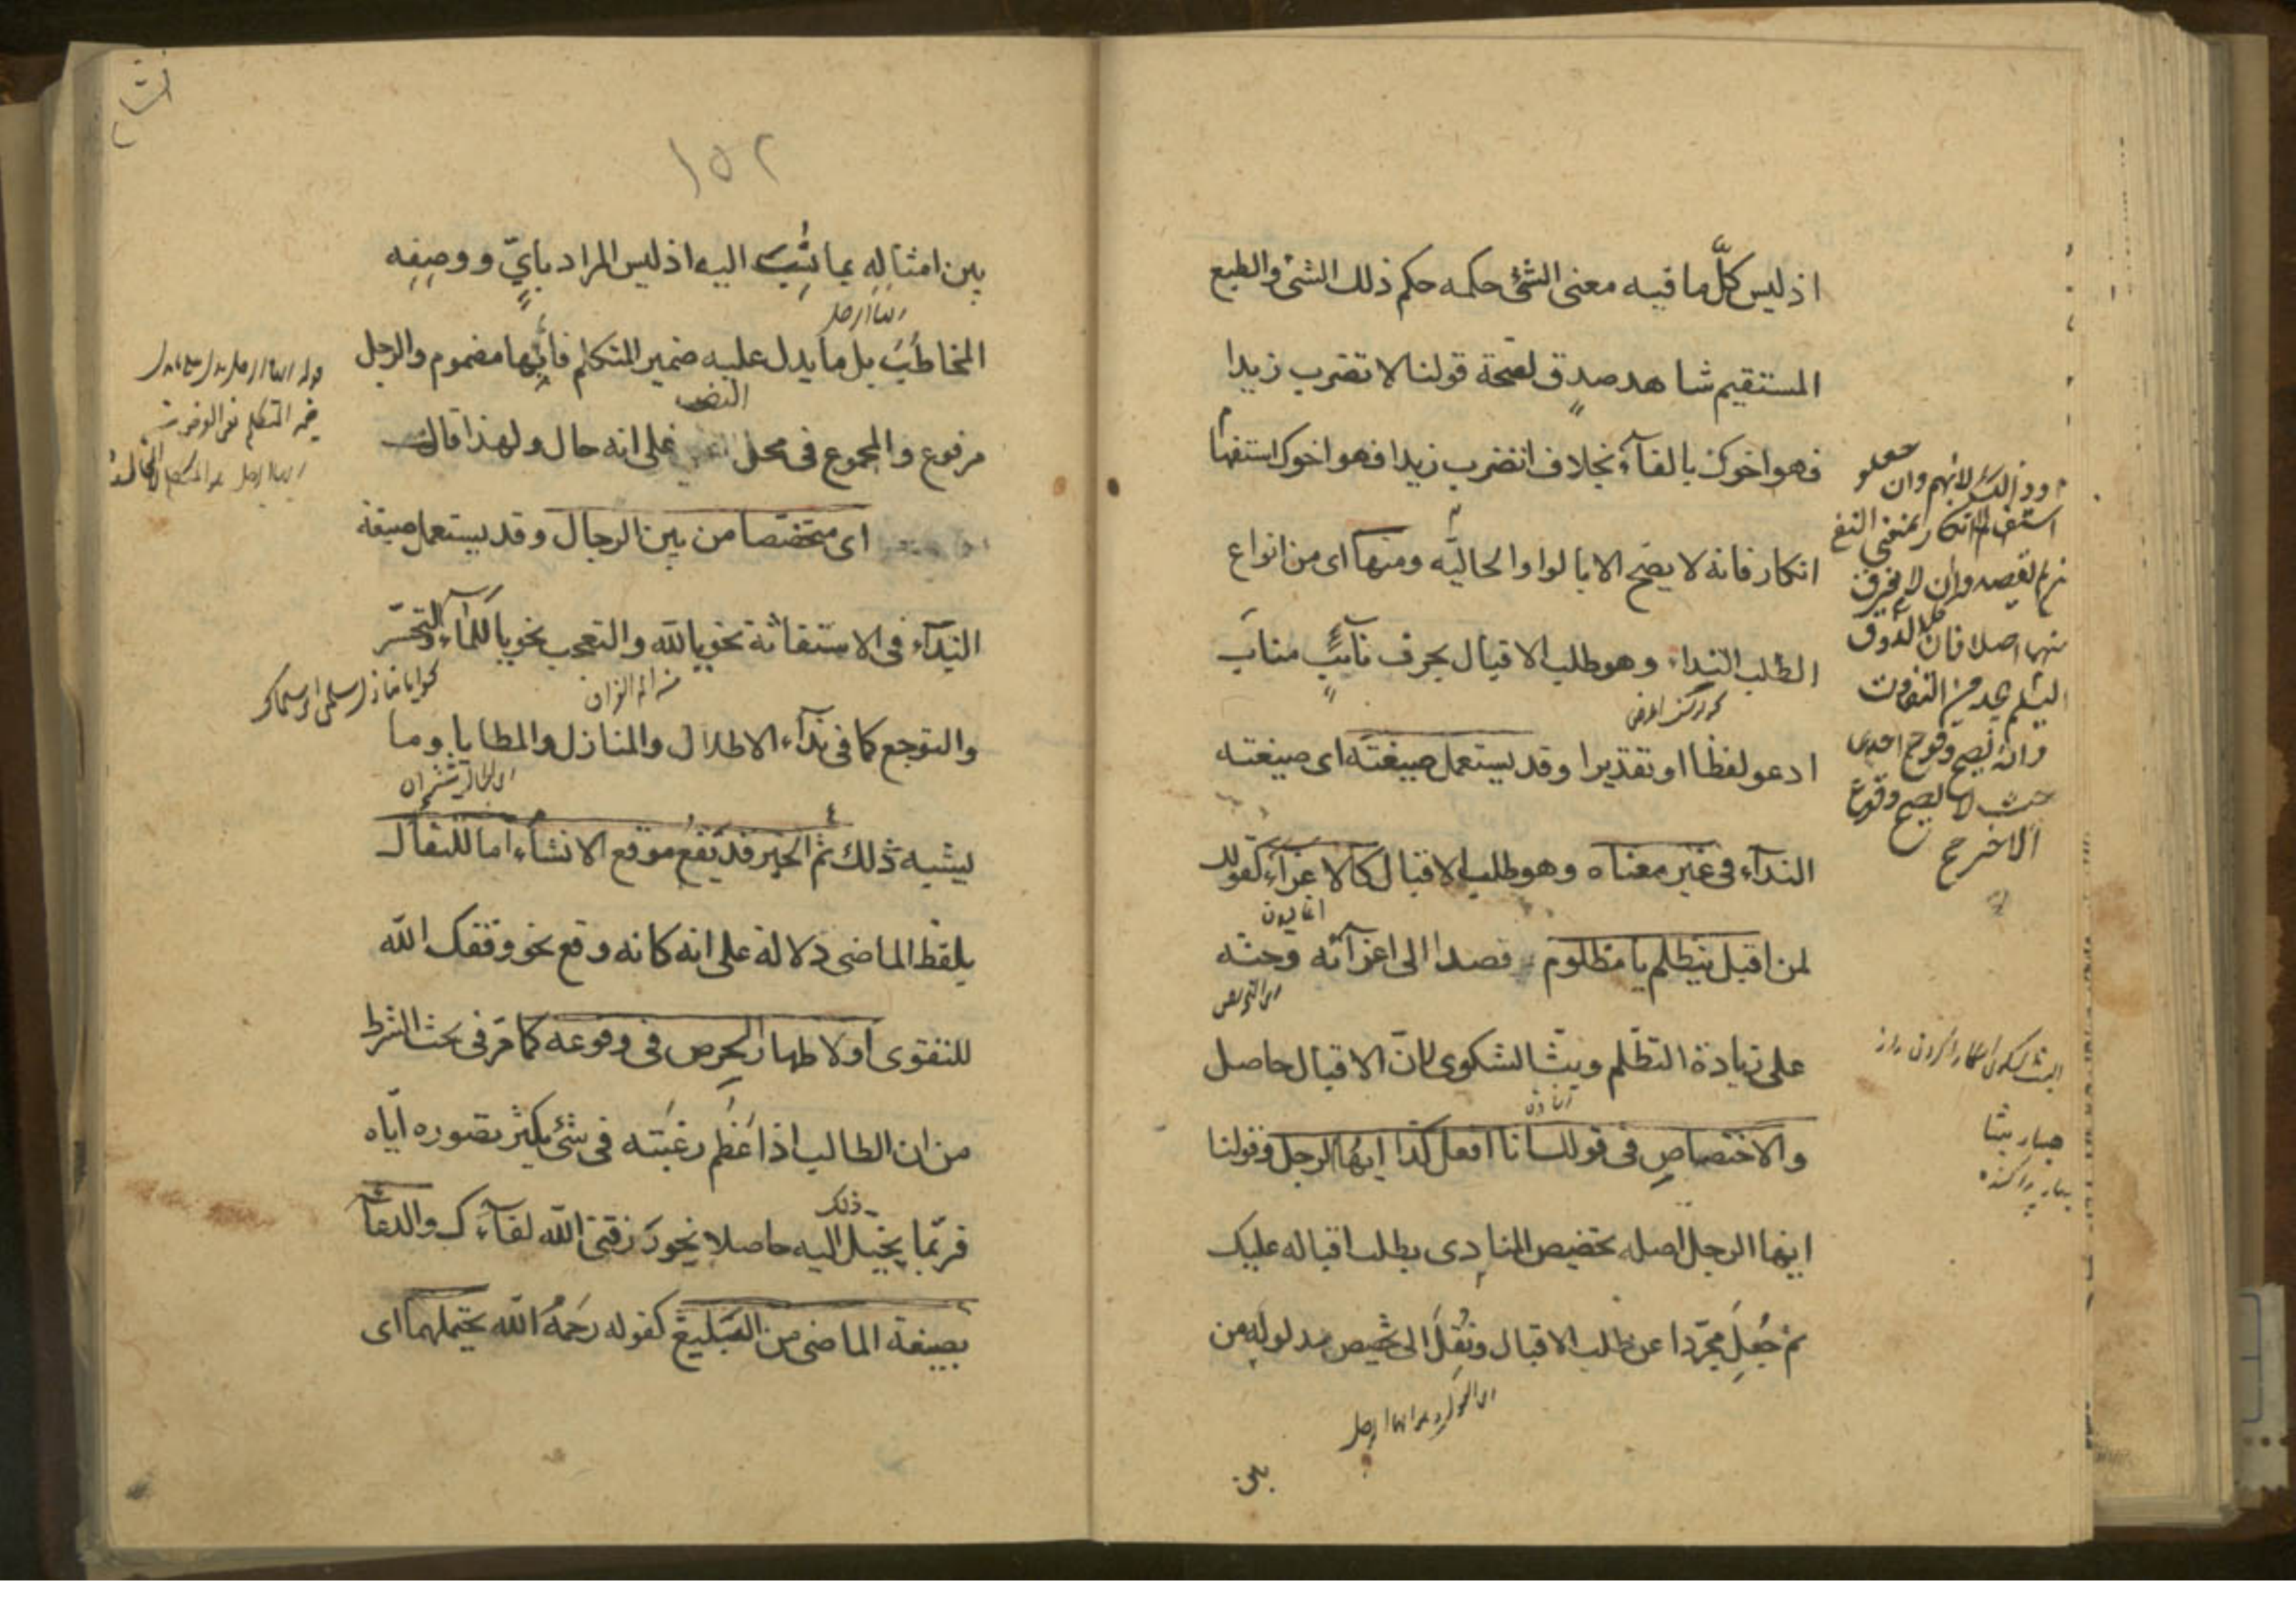 اذ ليس كلّ ما فيه معنى الشئ حكمه حكم ذلك الشئ والطبع
المستقيم شاهد صدق لصحة قولنا لا تضرب زيدا
فهو اخوك بالفآء بخلاف اتضرب زيدا فهو اخوك استفهام
انكار فانه لا يصح الا بالواو الحاليّه ومنها اى من انواع
الطلب النداء وهو طلب الاقبال بحرف نآئب مناب
ادعو لفظا او تقديرا وقد يستعمل صيغته اى صيغته
الندآء فى غير معناه وهو طلب الاقبال كالاغرآء كقولك
لمن اقبل يتظلم يا مظلوم قصدا الى اغرآئه وحثه
على زيادة التظلم وبثّ الشكوى لانّ الاقبال حاصل
والاختصاص فى قولك انا افعل كذا ايها الرجل وقولنا
ايها الرجل اصله تخصيص المنادى بطلب اقباله عليك
ثم جُعِلَ مجرّدا عن طلب الاقبال ونُقِلَ الى تخصيص مدلوله من
بين
وذلك لانهم وان جعلو
استفهام الانكار بمعنى النفى
منهما اصلا فان الذوق
السليم يجد من التفاوت
وانه يصح وقوع احدى
حيث لا يصح وقوع
الاخر ح
١٥٢
بين امثاله بما نُسِبَ اليه اذ ليس المراد بايّ ووصفِه
المخاطَبَ بل ما يدل عليه ضمير المتكلم فايّها مضموم والرجل
مرفوع والمجموع فى محل النصب على انه حال ولهذا قال
اى متخصّصا من بين الرجال وقد يستعمل صيغة
النّدآء فى الاستغاثة نحو يا للّه والتعجب نحو يا للمآء والتحسّر
والتوجع كما فى ندآء الاطلال والمنازل والمطايا وما
يشبه ذلك ثم الخبر قد يَقعُ موقع الانشآء اما للتفأل
بلفظ الماضى دلالة على انه كانه وقع نحو وفقك اللّه
للتقوى او لاظهار الحِرص فى وقوعه كما مَرّ فى بحث الشرط
من ان الطالب اذا عَظُم رغبَته فى شئ يكثر تصوره ايّاه
فربّما يخيل اليه ذلك حاصلا نحو رَزقنى اللّه لقآءك والدعآء
بصيغة الماضى من البليغ كقوله رَحِمَهُ اللّه يحتملهما اى